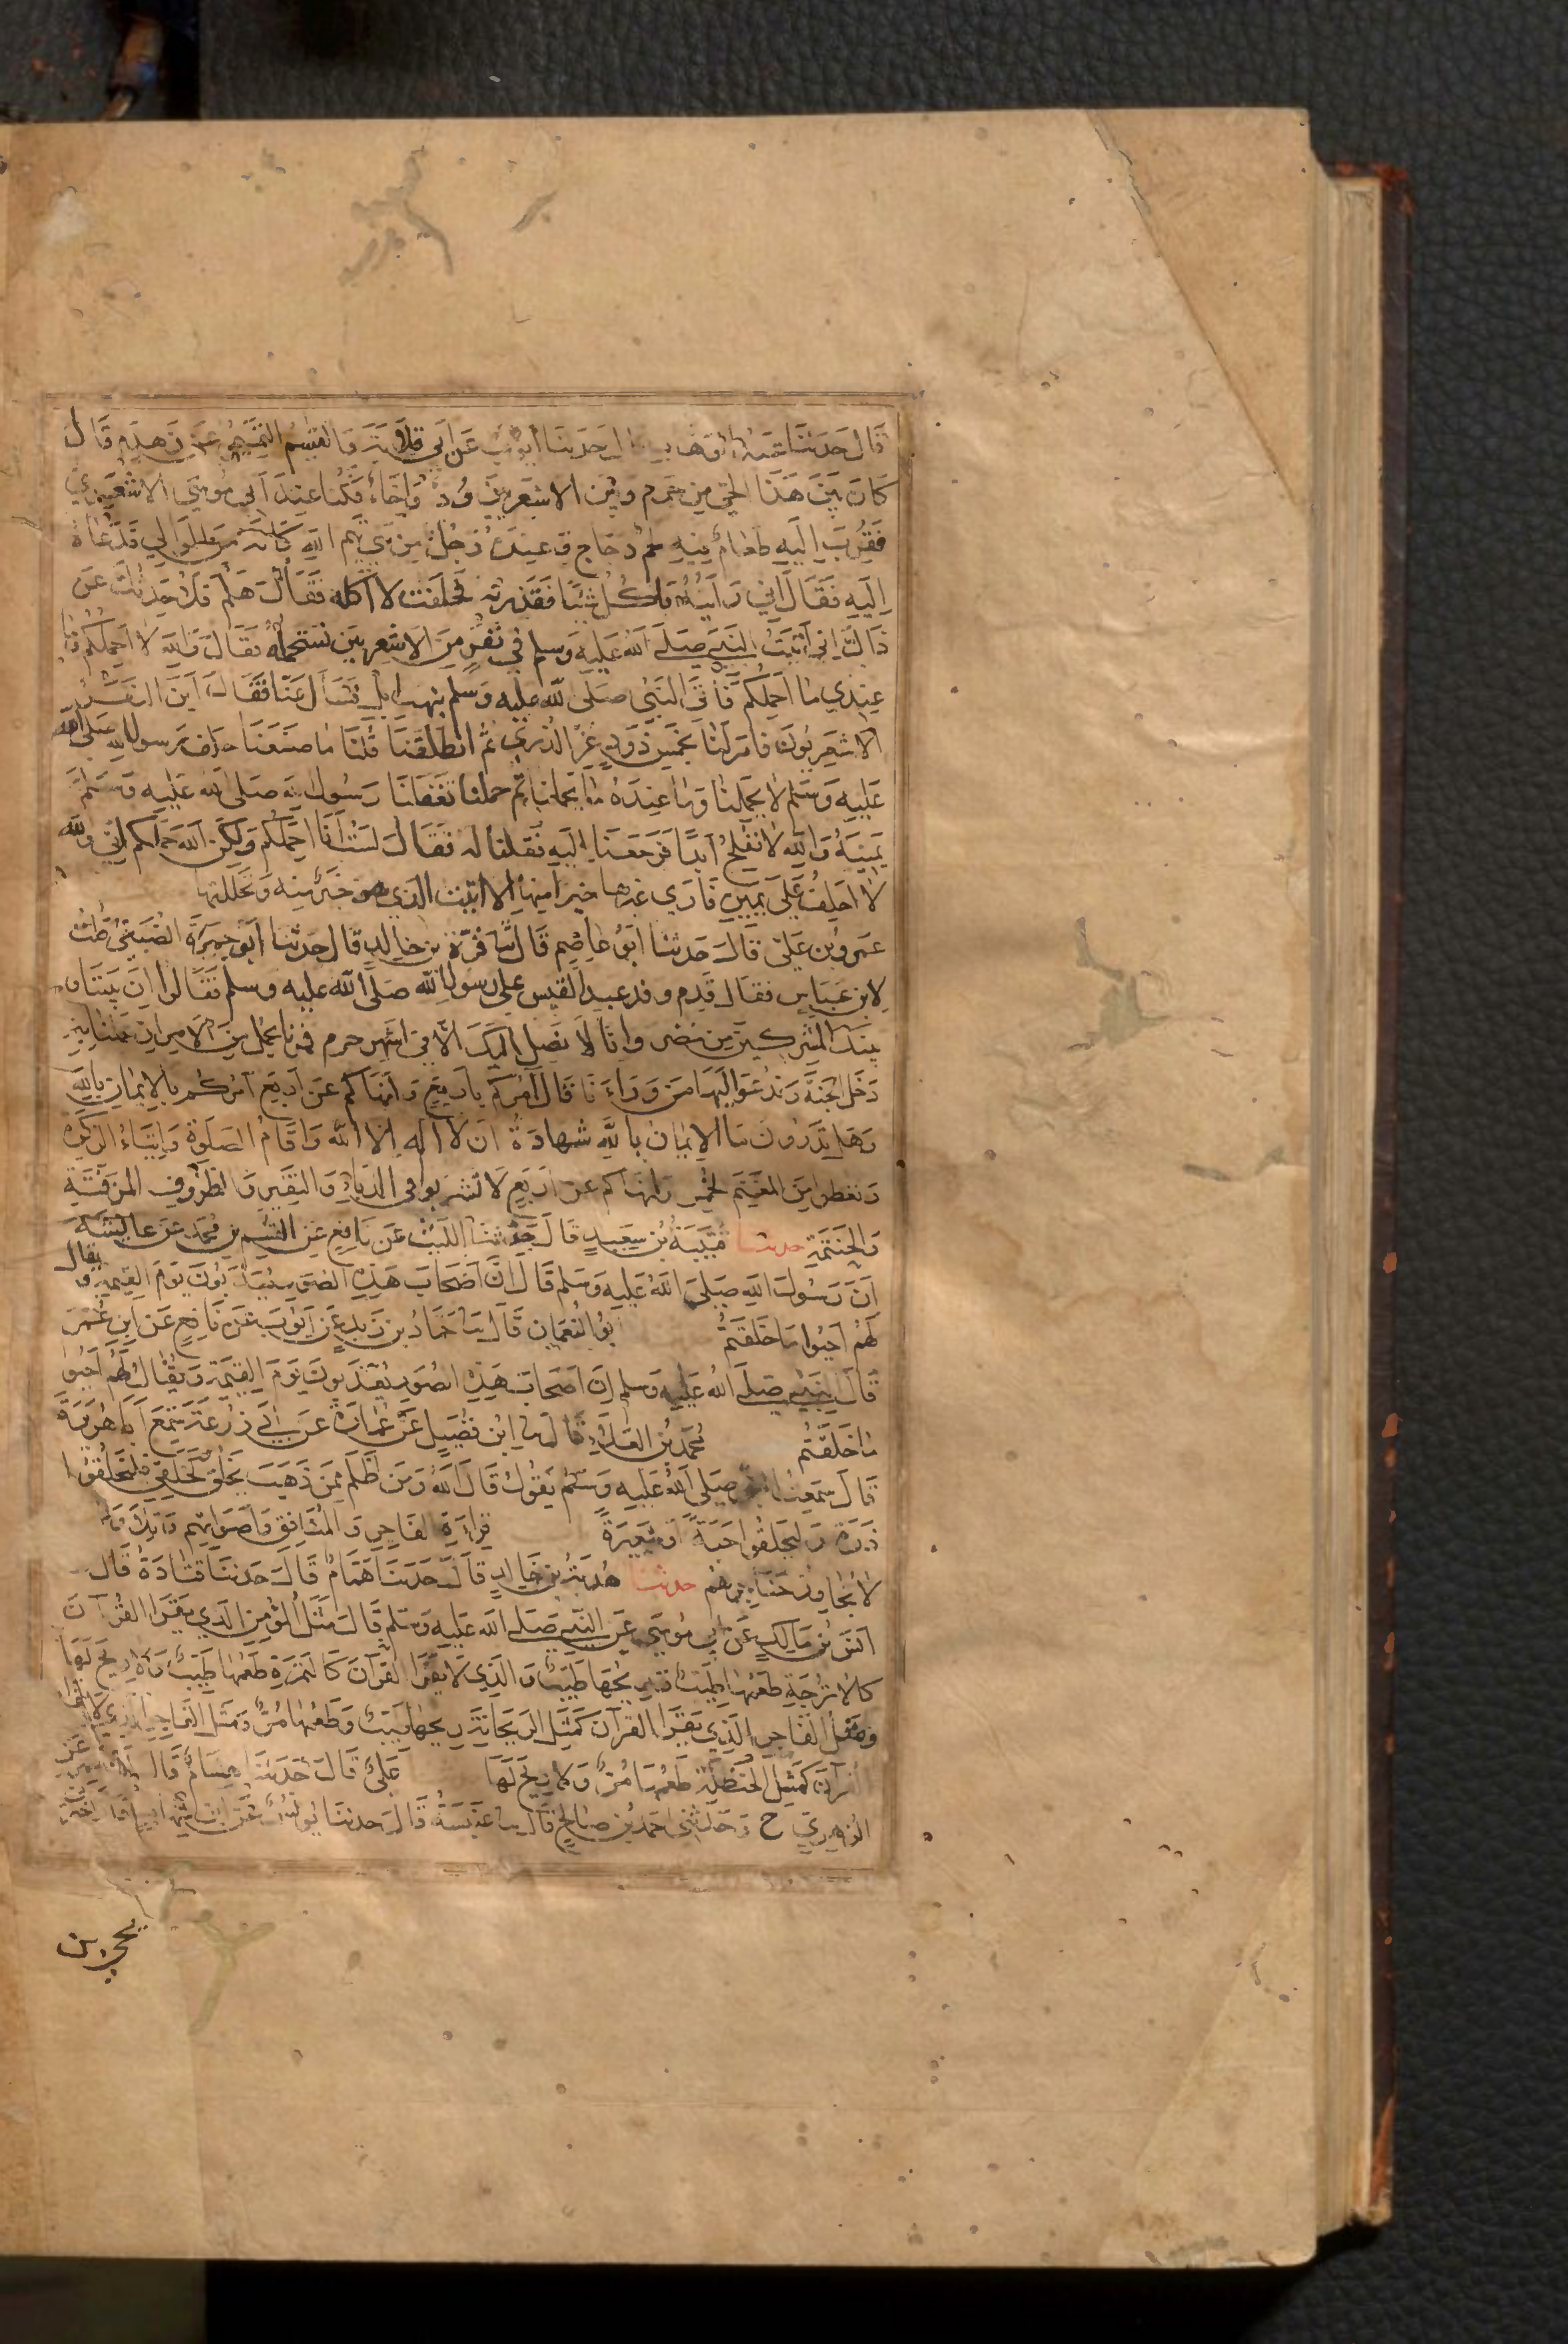 قال حدثنا عبد الوهاب قال حدثنا ايوب عن ابي قلابة والقسم التميمي عن زهدم قال
كان بين هذا الحي من جرم وبين الاشعريين ود واخاء فكنا عند ابي موسى الاشعري
فقرب اليه طعام فيه لحم دجاج وعنده رجل من بني تيم الله كانه من الموالي فدعاه
اليه فقال اني رايته ياكل شيئا فقذرته فحلفت لا آكله فقال هلم فلاحدثك عن
ذاك اني اتيت النبي صلى الله عليه وسلم في نفر من الاشعريين نستحمله فقال والله لا احملكم وما
عندي ما احملكم فاتى النبي صلى الله عليه وسلم بنهب ابل فسأل عنا فقال اين النفر
الاشعريون فامر لنا بخمس ذود غر الذرى ثم انطلقنا قلنا ما صنعنا حلف رسول الله صلى الله
عليه وسلم لا يحملنا وما عنده ما يحملنا ثم حملنا تغفلنا رسول الله صلى الله عليه وسلم
يمينه والله لا نفلح ابدا فرجعنا اليه فقلنا له فقال لست انا احملكم ولكن الله حملكم اني والله
لا احلف على يمين فارى غيرها خيرا منها الا اتيت الذي هو خير منه وتحللتها
عمرو بن علي قال حدثنا ابو عاصم قال ثنا قرة بن خالد قال حدثنا ابو جمرة الضبعي قلت
لابن عباس فقال قدم وفد عبد القيس على رسول الله صلى الله عليه وسلم فقالوا ان بيننا و
بينك المشركين من مضر وانا لا نصل اليك الا في اشهر حرم فمرنا بجمل من الامر ان عملنا به
دخل الجنة وندعو اليها من وراءنا قال آمركم باربع وانهاكم عن اربع آمركم بالايمان بالله
وهل تدرون ما الايمان بالله شهادة ان لا اله الا الله واقام الصلوة وايتاء الزكوة
وتعطوا من المغنم الخمس وانهاكم عن اربع لا تشربوا في الدباء والنقير والظروف المزفتة
والحنتمة حدثنا قتيبة بن سعيد قال حدثنا الليث عن نافع عن القسم بن محمد عن عائشة
ان رسول الله صلى الله عليه وسلم قال ان اصحاب هذه الصور يعذبون يوم القيمة ويقال
لهم احيوا ما خلقتم ابو النعمان قال ثنا حماد بن زيد عن ايوب عن نافع عن ابن عمر
قال النبي صلى الله عليه وسلم ان اصحاب هذه الصور يعذبون يوم القيمة ويقال لهم احيوا
ما خلقتم محمد بن العلاء قال ثنا ابن فضيل عن عمارة عن ابي زرعة سمع ابا هريرة
قال سمعت النبي صلى الله عليه وسلم يقول قال الله ومن اظلم ممن ذهب يخلق كخلقي فليخلقوا
ذرة وليخلقوا حبة او شعيرة قراءة الفاجر والمنافق واصواتهم وتلاوتهم
لا تجاوز حناجرهم حدثنا هدبة بن خالد قال حدثنا همام قال حدثنا قتادة قال
انس بن مالك عن ابي موسى عن النبي صلى الله عليه وسلم قال مثل المؤمن الذي يقرا القرآن
كالاترجة طعمها طيب وريحها طيب والذي لا يقرا القرآن كالتمرة طعمها طيب ولا ريح لها
ومثل الفاجر الذي يقرا القرآن كمثل الريحانة ريحها طيب وطعمها مر ومثل الفاجر الذي لا يقرا
القرآن كمثل الحنظلة طعمها مر ولا ريح لها علي قال حدثنا هشام قال معمر عن
الزهري ح وحدثني احمد بن صالح قال ثنا عنبسة قال حدثنا يونس عن ابن شهاب قال اخبرني
يحيى بن